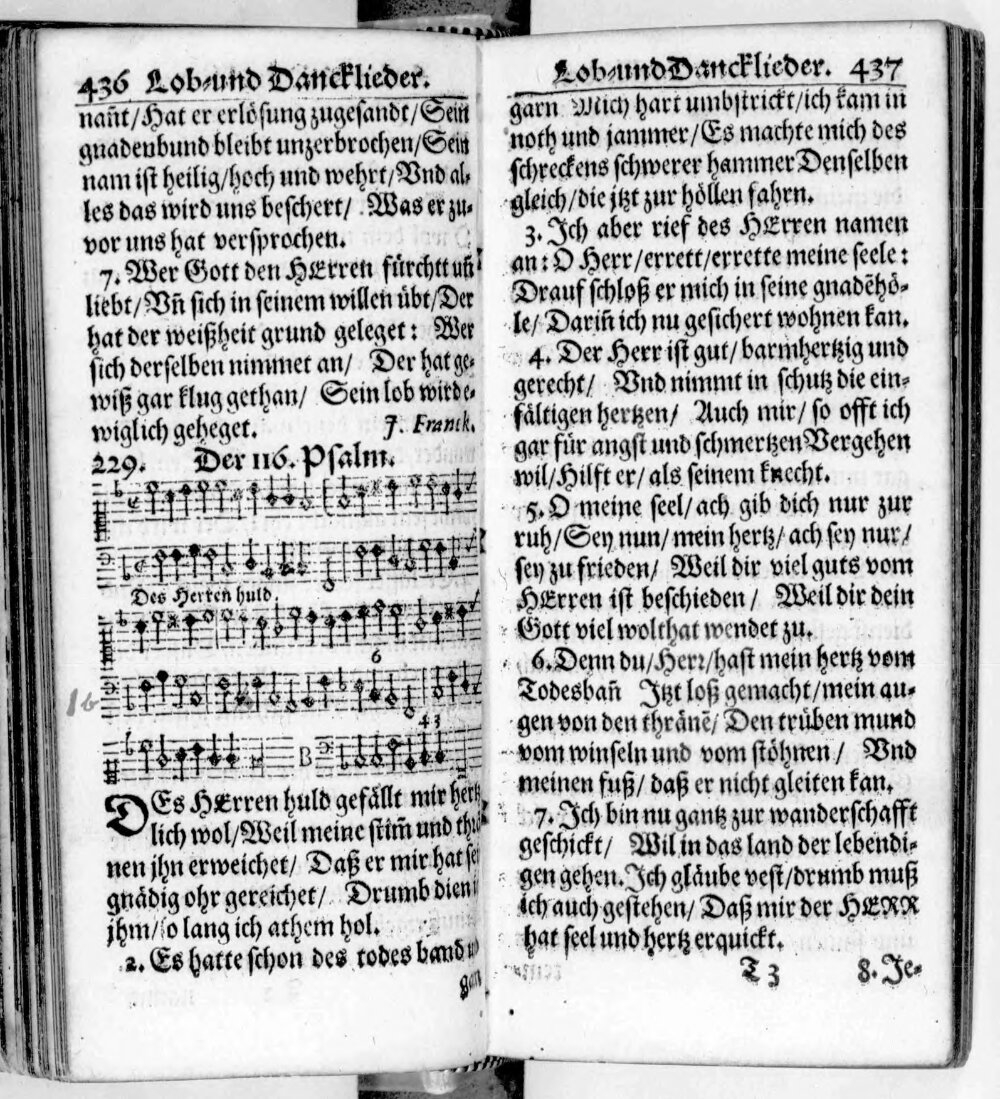 436 Lob-und Dancklieder.
nañt/Hat er erlösung zugesandt/Sein
gnadenbund bleibt unzerbrochen/Sein
nam ist heilig/hoch und wehrt/Vnd al-
les das wird uns beschert/ Was er zu-
vor uns hat versprochen.
7. Wer Gott den HErren fürchtt uñ
liebt/Vñ sich in seinem willen übt/Der
hat der weißheit grund geleget: Wer
sich derselben nimmet an/ Der hat ge-
wiß gar klug gethan/ Sein lob wird e-
wiglich geheget. J. Franck.
229. Der 116. Psalm.
Des Herren huld.
6
43
B
16
DEs HErren huld gefällt mir hertz
lich wol/Weil meine stim̃ und
nen jhn erweichet/ Daß er mir hat
gnädig ohr gereichet/ Drumb dien
jhm/so lang ich athem hol.
2. Es hatte schon des todes band
garn
Lob-und Dancklieder. 437
garn Mich hart umbstrickt/ich kam in
noth und jammer/Es machte mich des
schreckens schwerer hammer Denselben
gleich/die jtzt zur höllen fahrn.
3. Ich aber rief des HErren namen
an: O Herr/errett/errette meine seele:
Drauf schloß er mich in seine gnadēhö-
le/ Dariñ ich nu gesichert wohnen kan.
4. Der Herr ist gut/ barmhertzig und
gerecht/ Vnd nimmt in schutz die ein-
fältigen hertzen/ Auch mir/ so offt ich
gar für angst und schmertzen Vergehen
wil/Hilft er/ als seinem knecht.
5. O meine seel/ ach gib dich nur zur
ruh/Sey nun/ mein hertz/ ach sey nur/
sey zu frieden/ Weil dir viel guts vom
HErren ist beschieden/ Weil dir dein
Gott viel wolthat wendet zu.
6. Denn du/Herr/hast mein hertz vom
Todesbañ Jtzt loß gemacht/mein au-
gen von den thränē/ Den trüben mund
vom winseln und vom stöhnen/ Vnd
meinen fuß/ daß er nicht gleiten kan.
7. Ich bin nu gantz zur wanderschafft
geschickt/ Wil in das land der lebendi-
gen gehen. Ich gläube vest/drumb muß
ich auch gestehen/ Daß mir der HERR
hat seel und hertz erquickt.
T 3 8. Je-